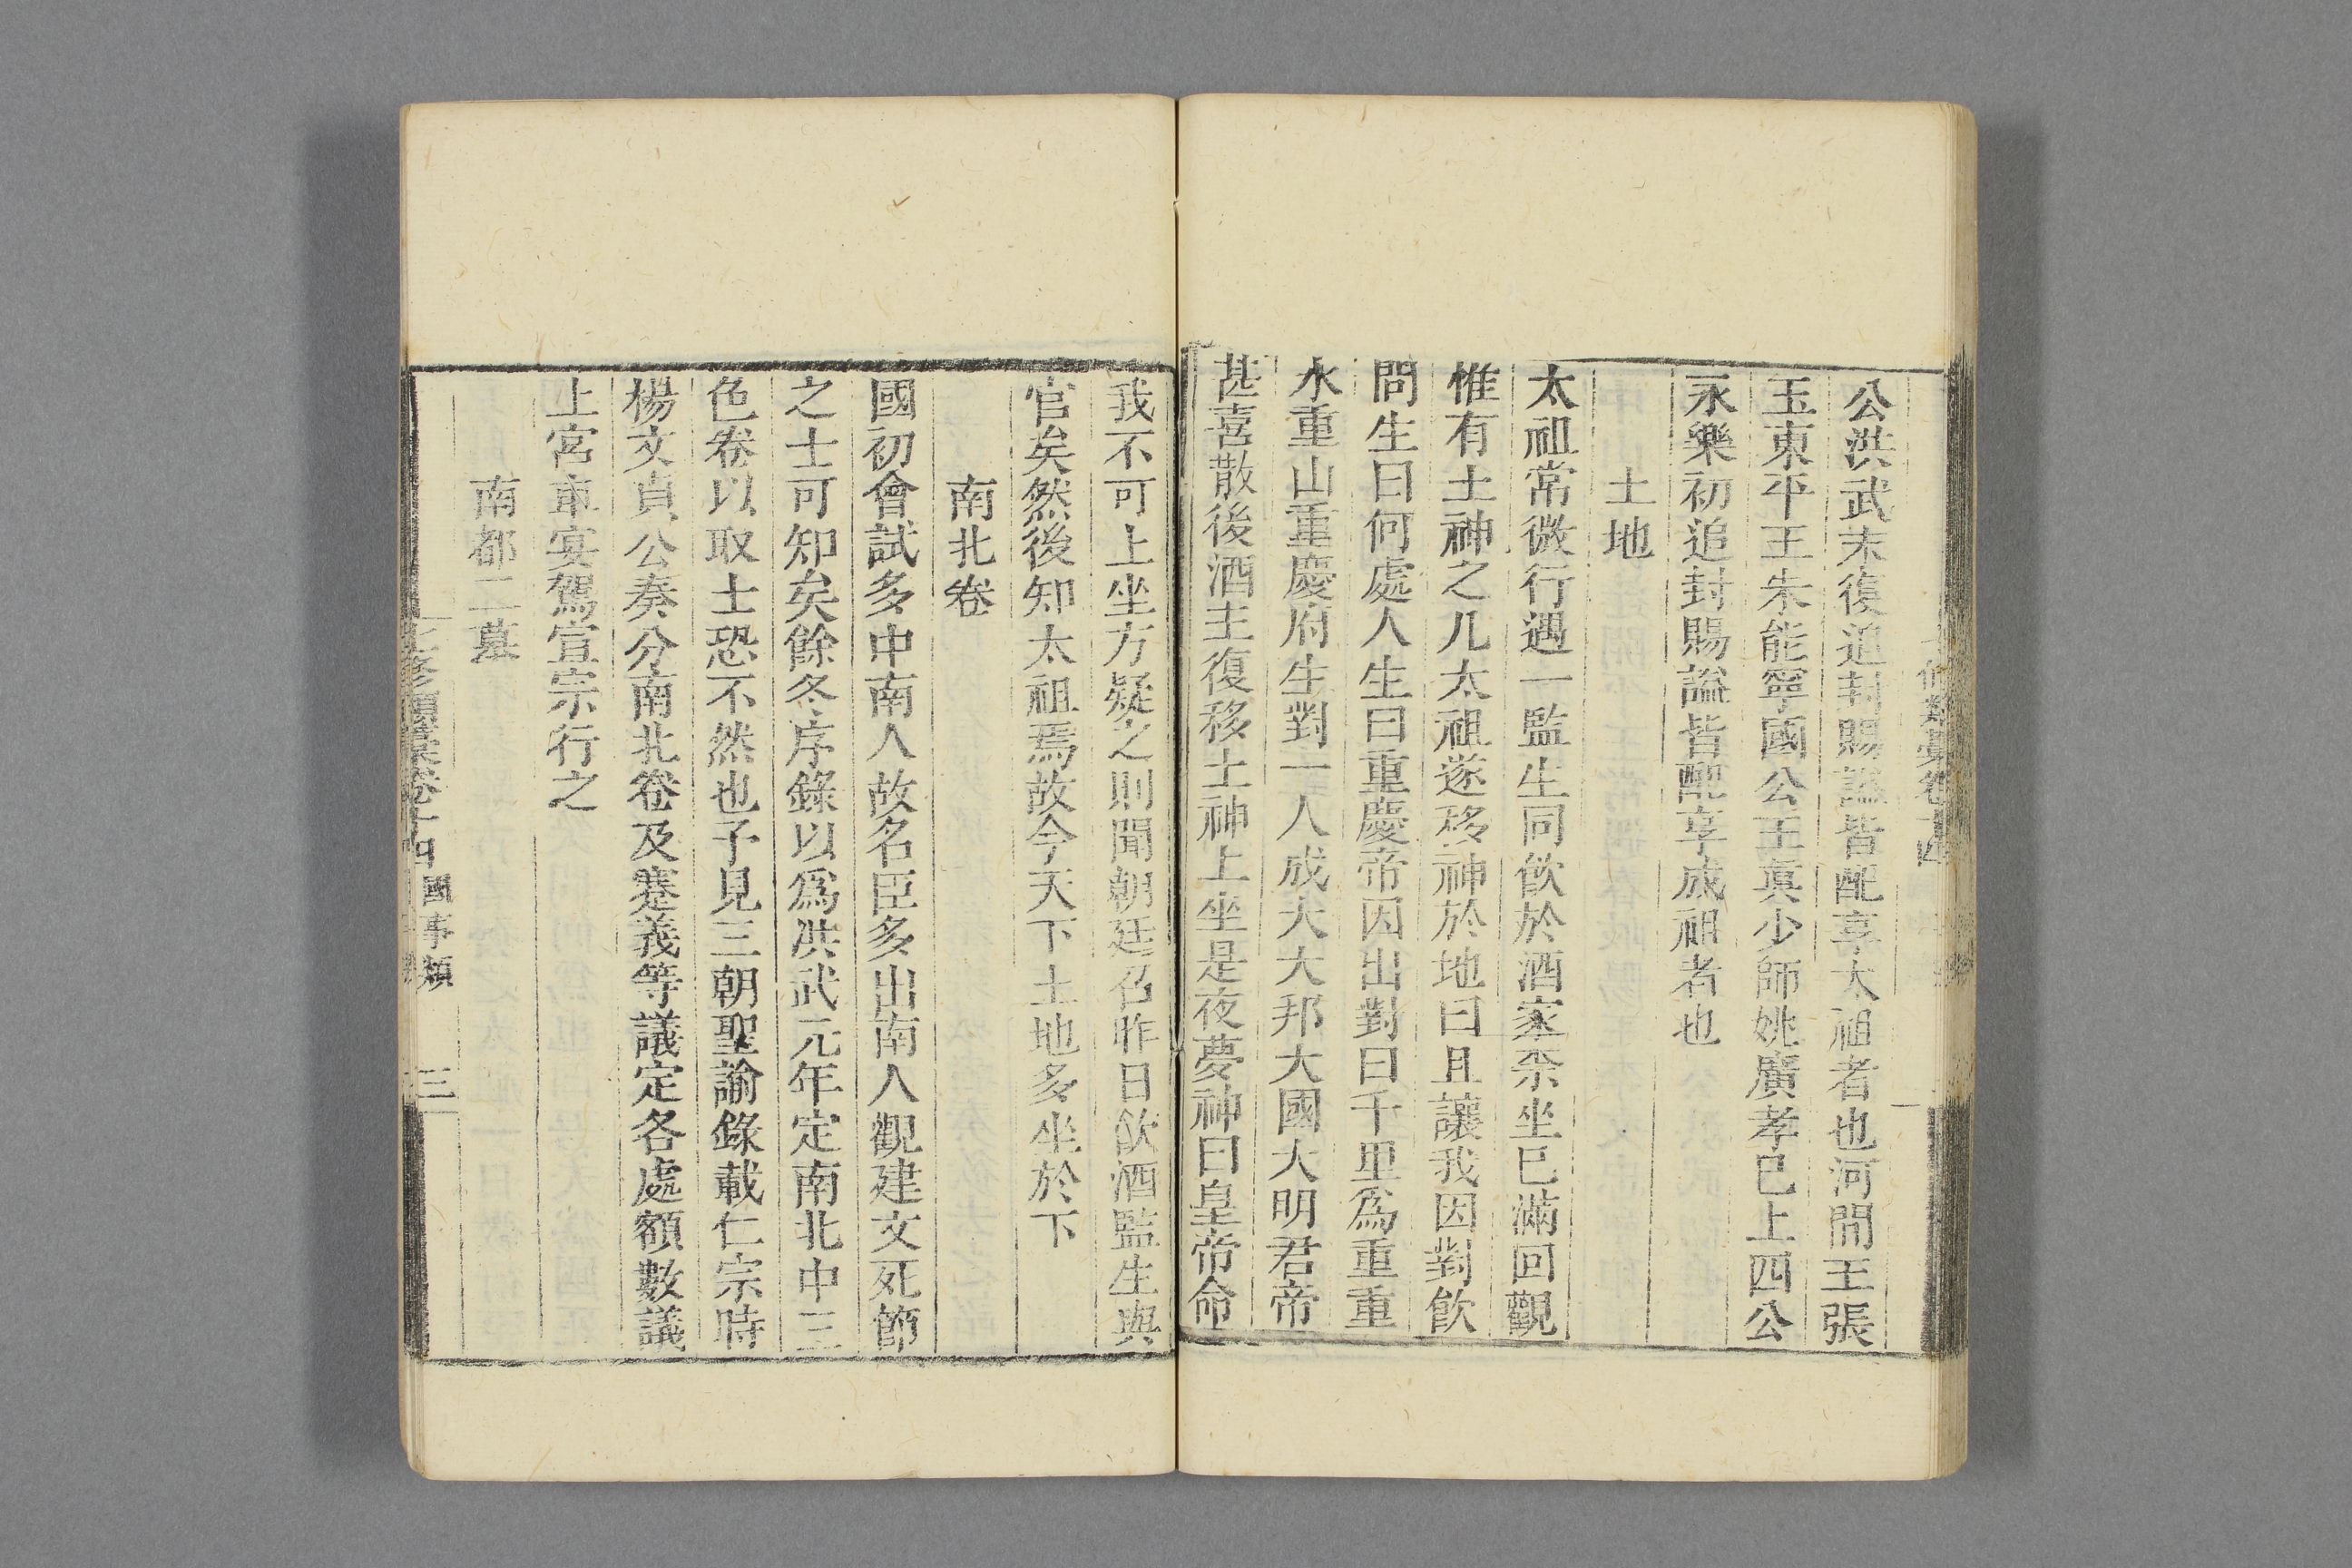 公洪武末復追封賜謚皆配享太祖者也河間王張
玉東平王朱能寧國公王真少師姚廣孝已上四公
永樂初追封賜謚皆配享成祖者也
土地
太祖常微行遇一監生同飲於酒家柰坐已滿回觀
惟有土神之几太祖遂移神於地曰且讓我因對飲
問生曰何處人生曰重慶帝因出對曰千里為重重
水重山重慶府生對一人成大大邦大國大明君帝
甚喜散後酒主復移土神上坐是夜夢神曰皇帝命
我不可上坐方疑之則聞朝廷召昨日飲酒監生與
官矣然後知太祖焉故今天下土地多坐於下
南北卷
國初會試多中南人故名臣多出南人觀建文死節
之士可知矣餘冬序錄以為洪武元年定南北中三
色卷以取士恐不然也予見三朝聖諭錄載仁宗時
楊文貞公奏分南北卷及蹇義等議定各處額數議
上宮車宴駕宣宗行之
南都二墓
七修類藁卷十四 國事類 三